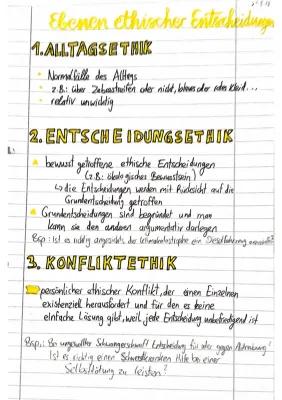 Ebenen ethischer Entscheidungen
1. ALLTAGSETHIK
Normalfälle des Alltags
z.B.: über Zebrastreifen oder nicht, blaues oder rotes Kleid...
relativ unwichtig
2. ENTSCHEIDUNGSETHIK
bewusst getroffene ethische Entscheidungen
(z.B.: ökologisches Bewusstsein)
↳ die Entscheidungen werden mit Rücksicht auf die
Grundentscheidung getroffen
Grundentscheidungen sind begründet und man
kann sie den anderen argumentativ darlegen
Bsp.: Ist es richtig angesichts der Klimakatastrophe ein Dieselfahrzeug
3. KONFLIKTETHIK
persönlicher ethischer Konflikt, der einen Einzelnen
existenziell herausfordert und für den es keine
einfache Lösung gibt, weil jede Entscheidung unbefriedigend ist
Bsp.: Bei ungewollter Schwangerschaft Entscheidung für oder gegen Abtreibung?
Ist es richtig einem Schwerstkranken Hilfe bei einer
Selbsttötung zu leisten?